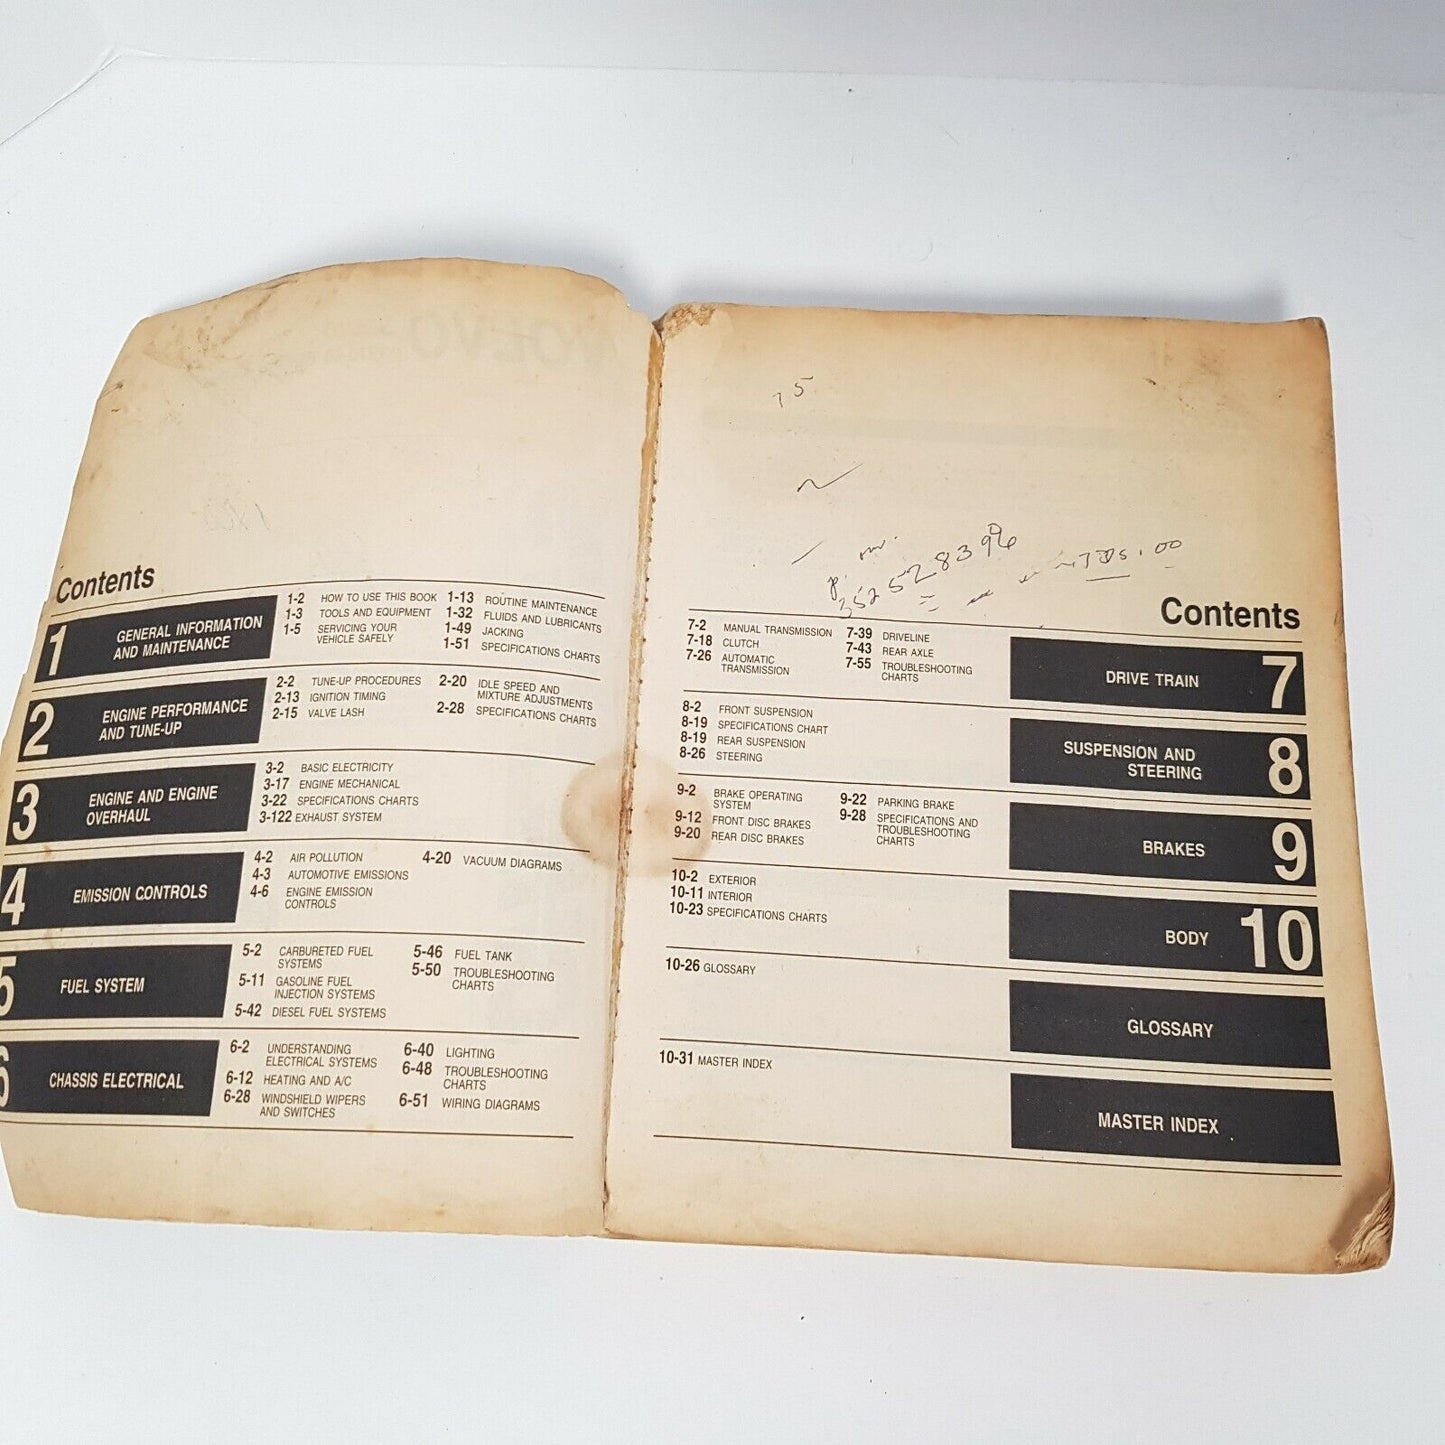 Contents
1 GENERAL INFORMATION AND MAINTENANCE
1-2 HOW TO USE THIS BOOK
1-3 TOOLS AND EQUIPMENT
1-5 SERVICING YOUR
VEHICLE SAFELY
1-13 ROUTINE MAINTENANCE
1-32 FLUIDS AND LUBRICANTS
1-49 JACKING
1-51 SPECIFICATIONS CHARTS
2 ENGINE PERFORMANCE AND TUNE-UP
2-2 TUNE-UP PROCEDURES
2-13 IGNITION TIMING
2-15 VALVE LASH
2-20 IDLE SPEED AND
MIXTURE ADJUSTMENTS
2-28 SPECIFICATIONS CHARTS
3 ENGINE AND ENGINE OVERHAUL
3-2 BASIC ELECTRICITY
3-17 ENGINE MECHANICAL
3-22 SPECIFICATIONS CHARTS
3-122 EXHAUST SYSTEM
4 EMISSION CONTROLS
4-2 AIR POLLUTION
4-3 AUTOMOTIVE EMISSIONS
4-6 ENGINE EMISSION
CONTROLS
4-20 VACUUM DIAGRAMS
5 FUEL SYSTEM
5-2 CARBURETED FUEL
SYSTEMS
5-11 GASOLINE FUEL
INJECTION SYSTEMS
5-42 DIESEL FUEL SYSTEMS
5-46 FUEL TANK
5-50 TROUBLESHOOTING
CHARTS
6 CHASSIS ELECTRICAL
6-2 UNDERSTANDING
ELECTRICAL SYSTEMS
6-12 HEATING AND A/C
6-28 WINDSHIELD WIPERS
AND SWITCHES
6-40 LIGHTING
6-48 TROUBLESHOOTING
CHARTS
6-51 WIRING DIAGRAMS
75
3525528396
Contents
7-2 MANUAL TRANSMISSION
7-18 CLUTCH
7-26 AUTOMATIC
TRANSMISSION
7-39 DRIVELINE
7-43 REAR AXLE
7-55 TROUBLESHOOTING
CHARTS
DRIVE TRAIN 7
8-2 FRONT SUSPENSION
8-19 SPECIFICATIONS CHART
8-19 REAR SUSPENSION
8-26 STEERING
SUSPENSION AND
STEERING 8
9-2 BRAKE OPERATING
SYSTEM
9-12 FRONT DISC BRAKES
9-20 REAR DISC BRAKES
9-22 PARKING BRAKE
9-28 SPECIFICATIONS AND
TROUBLESHOOTING
CHARTS
BRAKES 9
10-2 EXTERIOR
10-11 INTERIOR
10-23 SPECIFICATIONS CHARTS
BODY 10
10-26 GLOSSARY
GLOSSARY
10-31 MASTER INDEX
MASTER INDEX